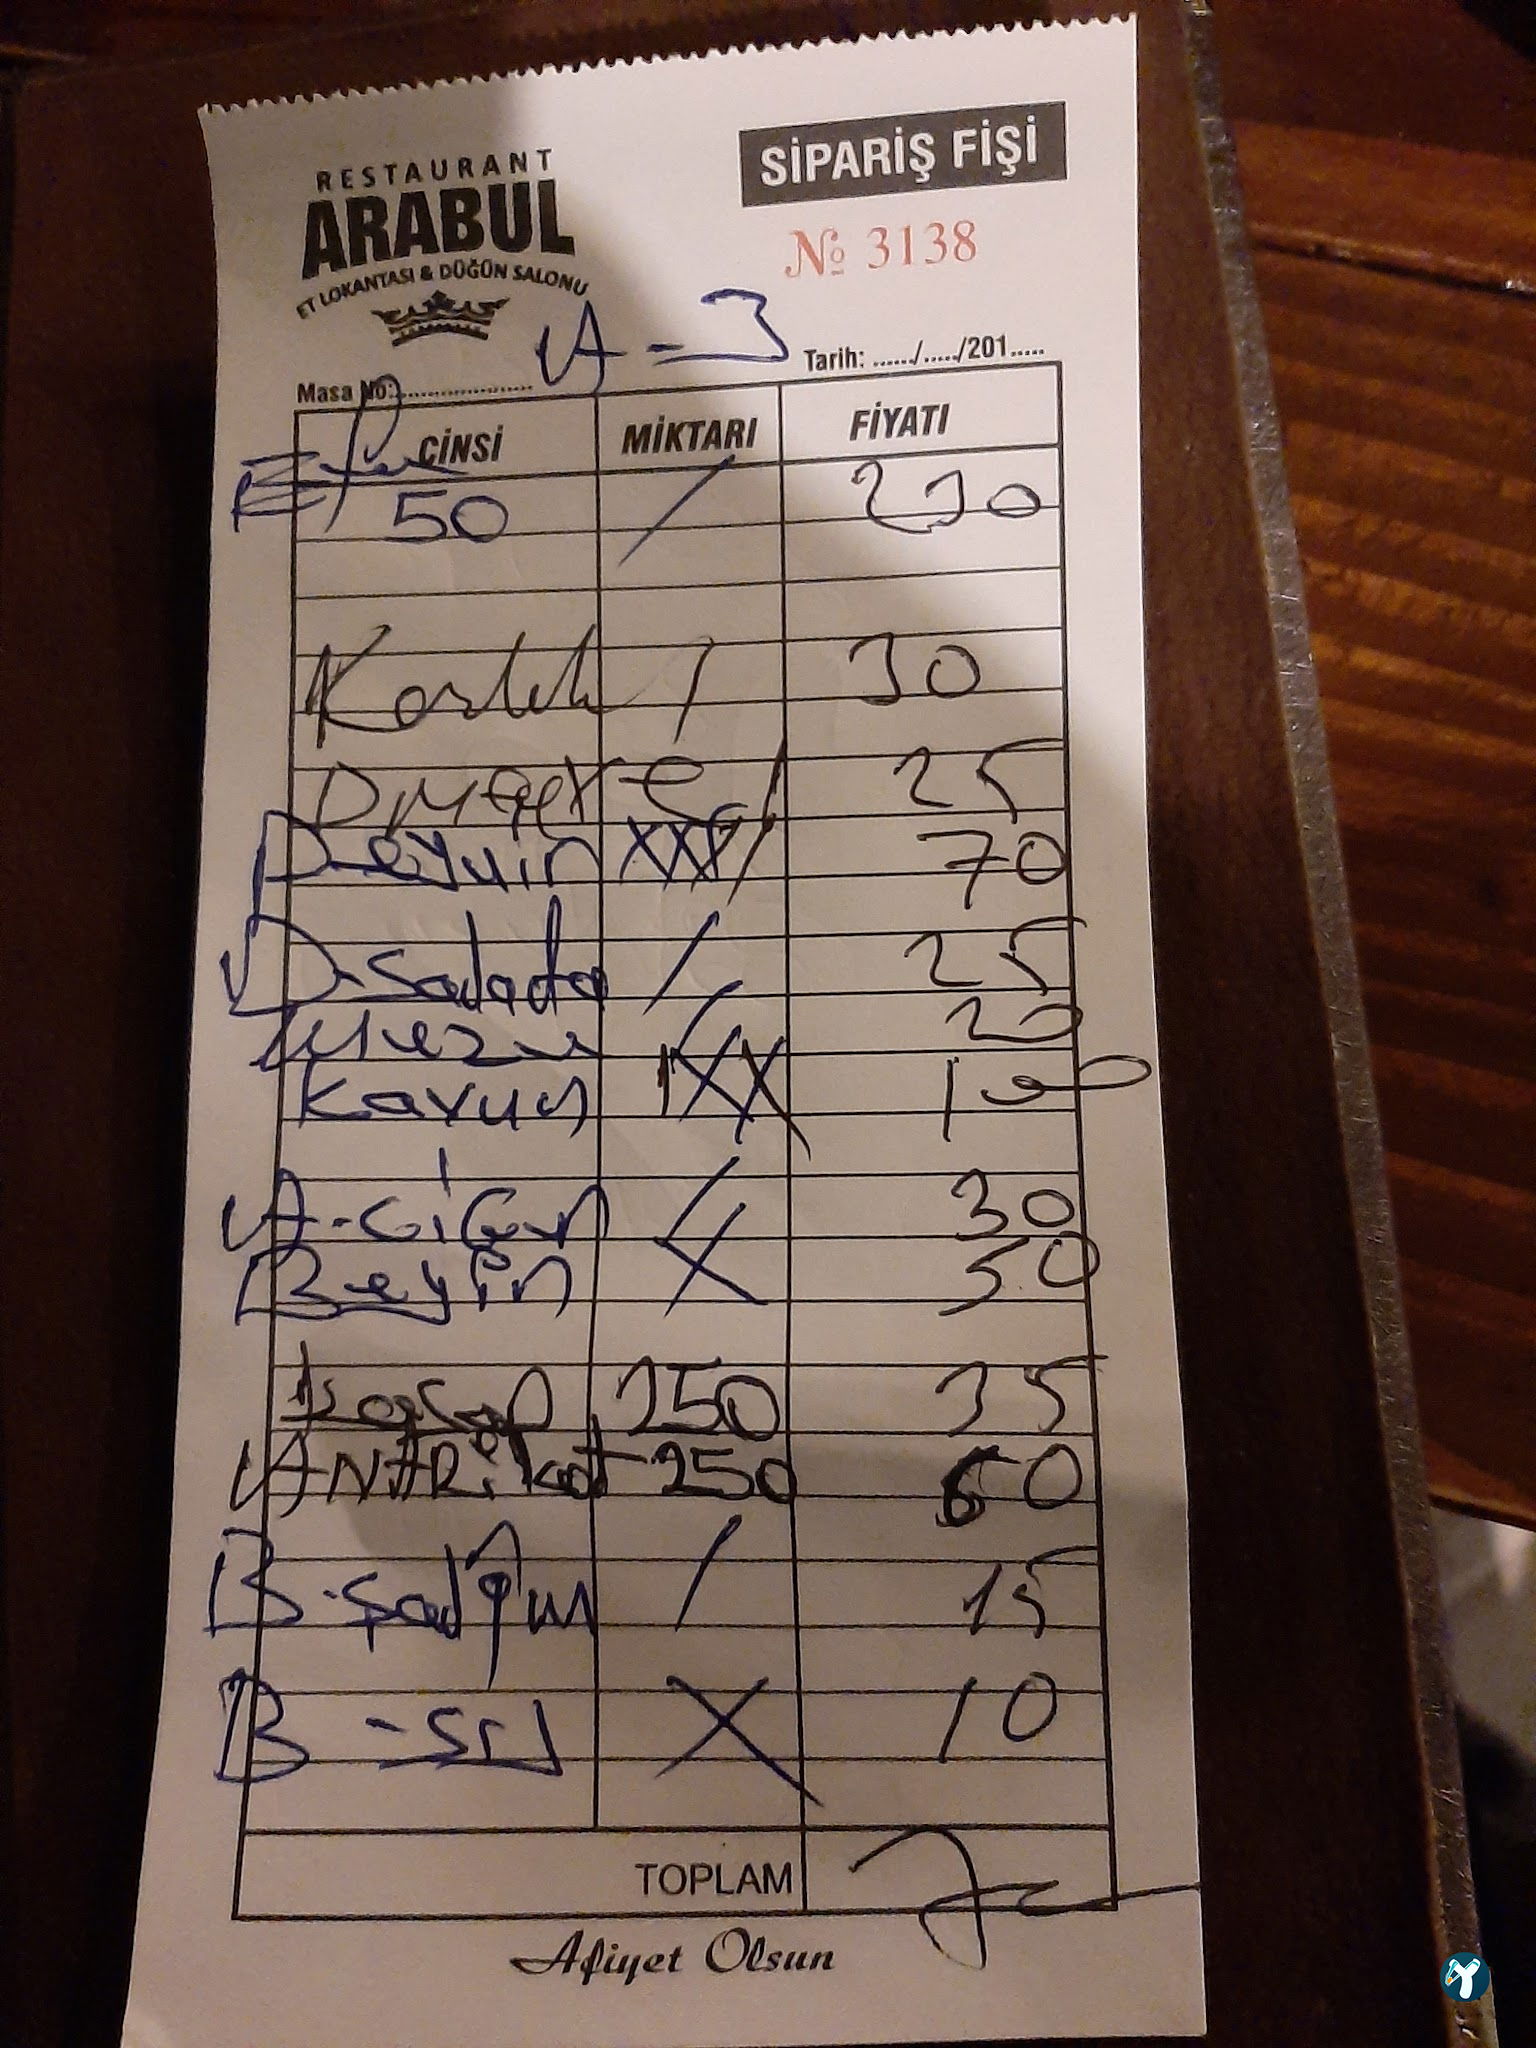 RESTAURANT
ARABUL
ET LOKANTASI & DÜĞÜN SALONU
SİPARİŞ FİŞİ
№ 3138
A-3
Masa No:....................
Tarih: ....../...../201.....
CİNSİ MİKTARI FİYATI
Efe
50 / 230
/ 30
25
Peynir XXX/ 70
D-Salata / 25
Meze 20
Kavun 100
A-ciğer 30
Beyin 50
Kaşar 250 35
ANtRikot 250 60
B-Şalgam / 15
B-su X 10
TOPLAM
Afiyet Olsun